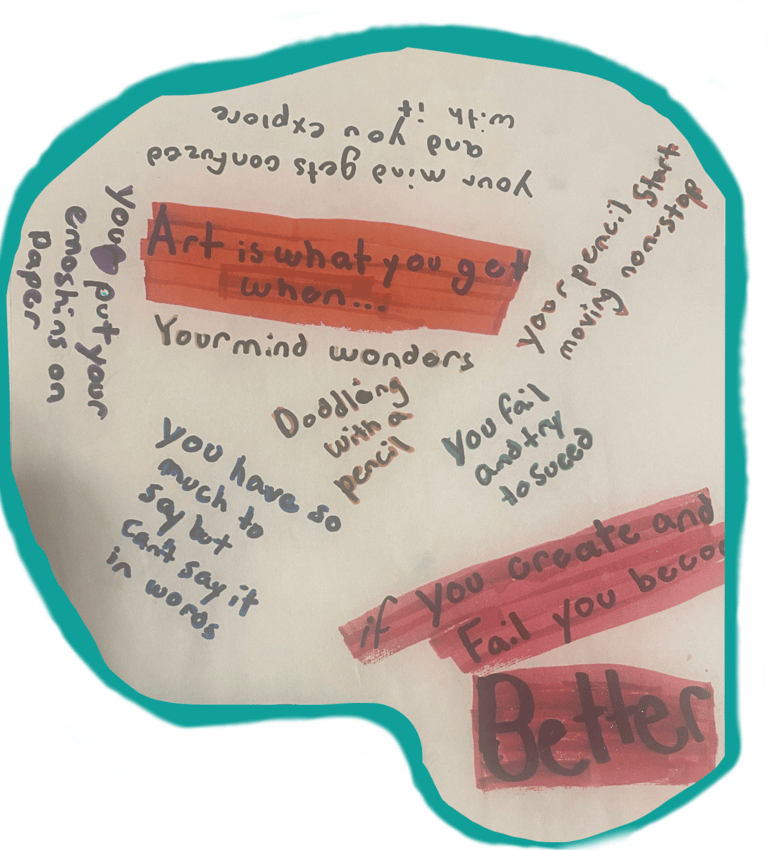 your mind gets confuzed
and you explore
with it
Art is what you get
when...
Your mind wonders
your pencil Start
moving non-stop
you put your
emoshins on
paper
Doddling
with a
pencil
you fail
and try
to suceed
you have so
much to
say but
can't say it
in words
if you create and
Fail you becom
Better